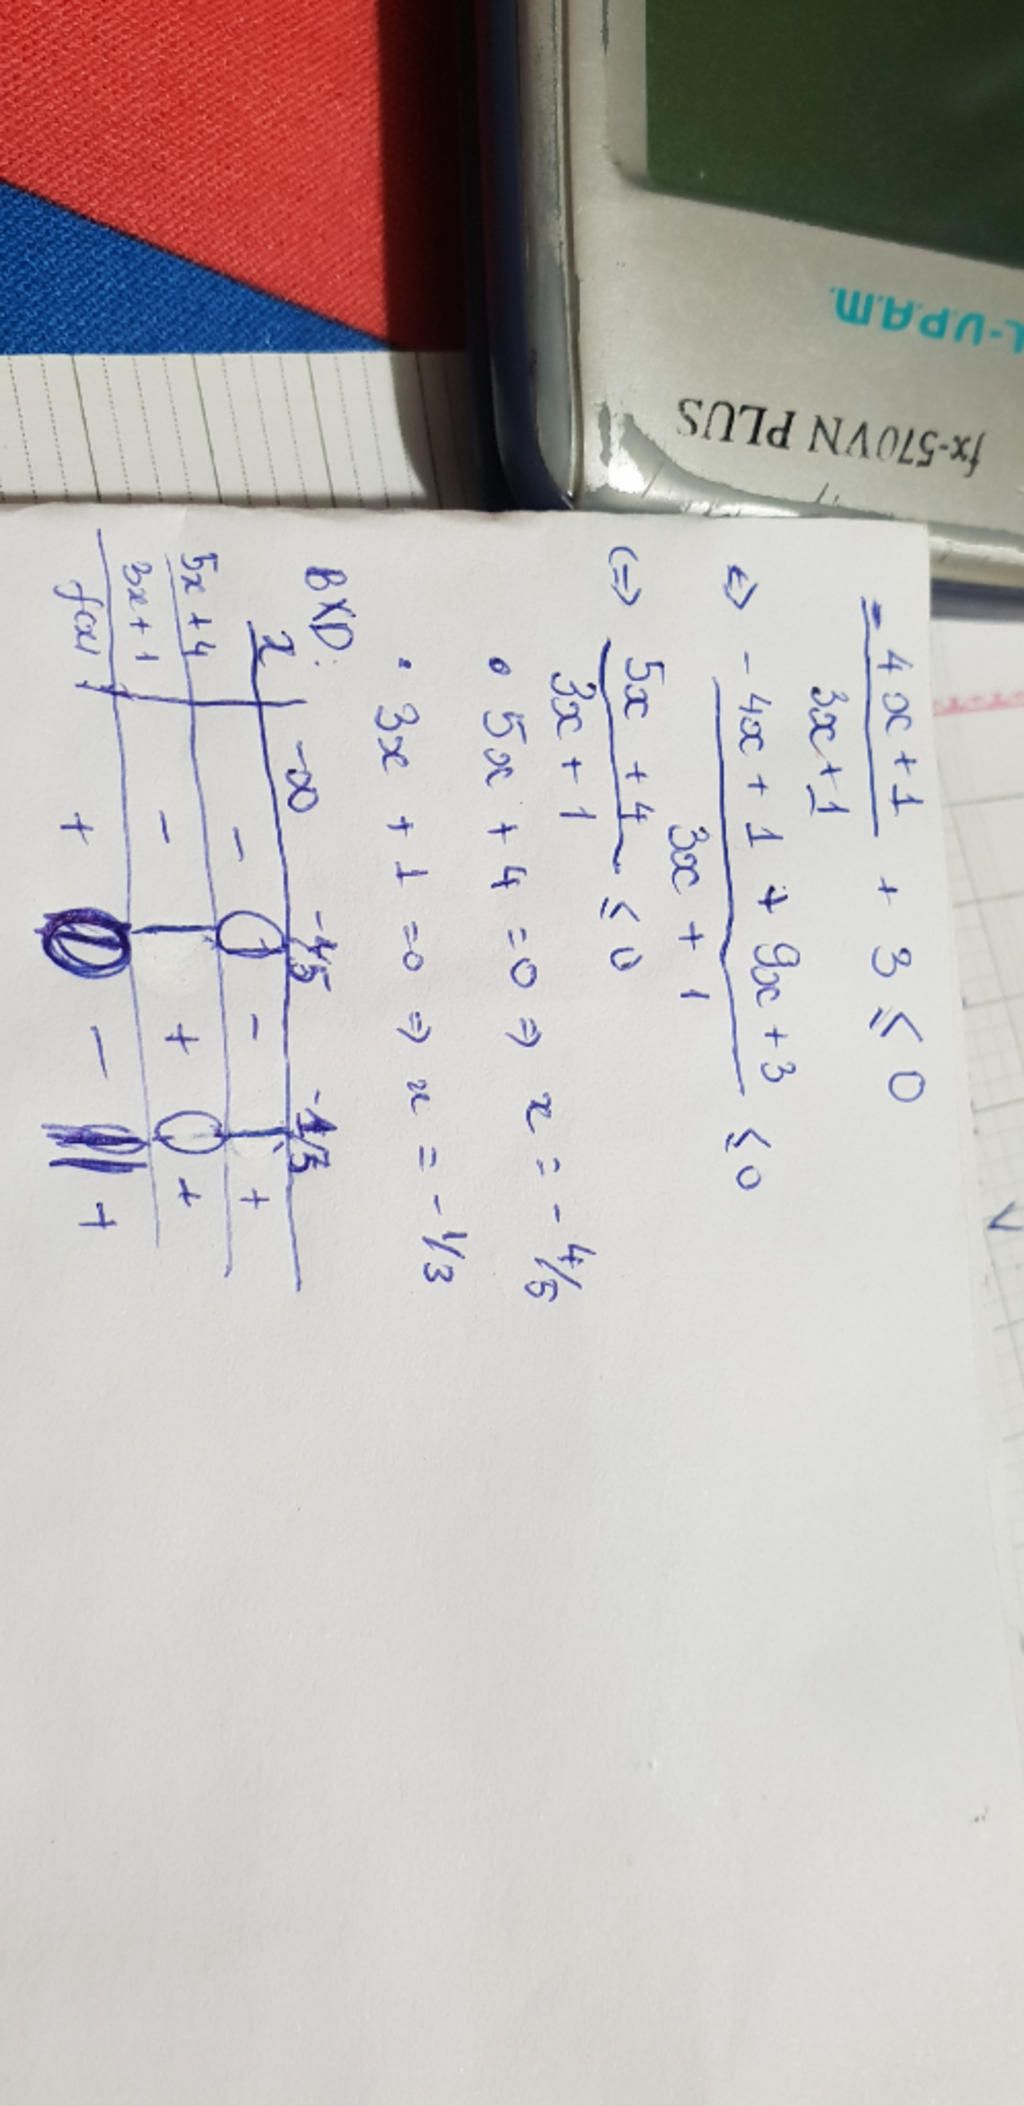 L-V.P.A.M.
fx-570VN PLUS
-4x+1/3x+1 + 3 ≤ 0
<=> -4x+1+9x+3/3x+1 ≤ 0
(=) 5x+4/3x+1 ≤ 0
• 5x+4=0 => x=-4/5
• 3x+1=0 => x=-1/3
BXD:
x -∞ -4/5 -1/3
5x+4 - 0 - | +
3x+1 - | + 0 +
f(x) + 0 - || +